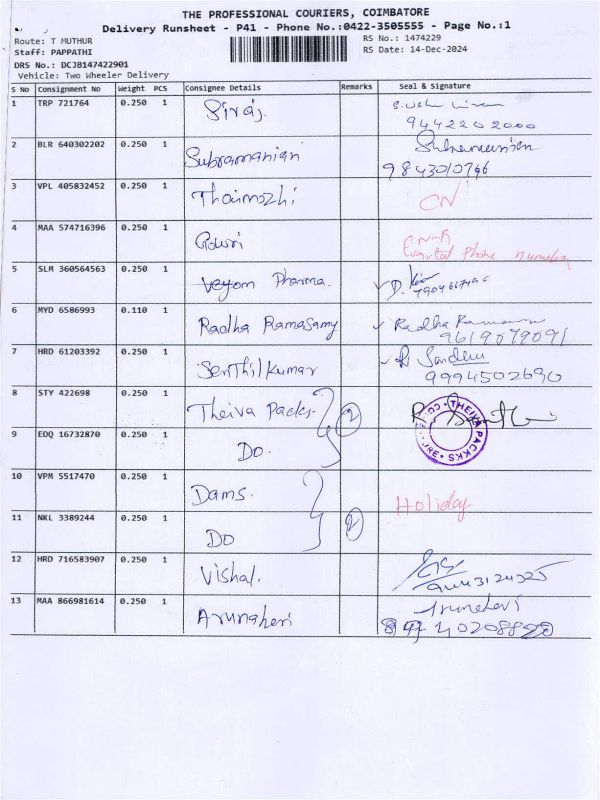 THE PROFESSIONAL COURIERS, COIMBATORE
Delivery Runsheet - P41 - Phone No.:0422-3505555 - Page No.:1
Route: T MUTHUR
RS No.: 1474229
Staff: PAPPATHI
RS Date: 14-Dec-2024
DRS No.: DCJB147422901
Vehicle: Two Wheeler Delivery
S No Consignment No Weight PCS Consignee Details Remarks Seal & Signature
1 TRP 721764 0.250 1 Siraj.
9442202000
2 BLR 640302202 0.250 1 Subramanian Subramanian
9843010766
3 VPL 405832452 0.250 1 Thaimozhi CN
4 MAA 574716396 0.250 1 Gowri C.N-R
Phone number
5 SLM 360564563 0.250 1 Veyom Pharma. D.
6 MYD 6586993 0.110 1 Radha Ramasamy Radha
9619079091
7 HRD 61203392 0.250 1 Senthilkumar
9994502690
8 STY 422698 0.250 1 Theiva Packs. 2 THEIVA PACKKS
9 EDQ 16732870 0.250 1 Do.
10 VPM 5517470 0.250 1 Dams. Holiday
11 NKL 3389244 0.250 1 Do 2
12 HRD 716583907 0.250 1 Vishal.
13 MAA 866981614 0.250 1 Arunaheri